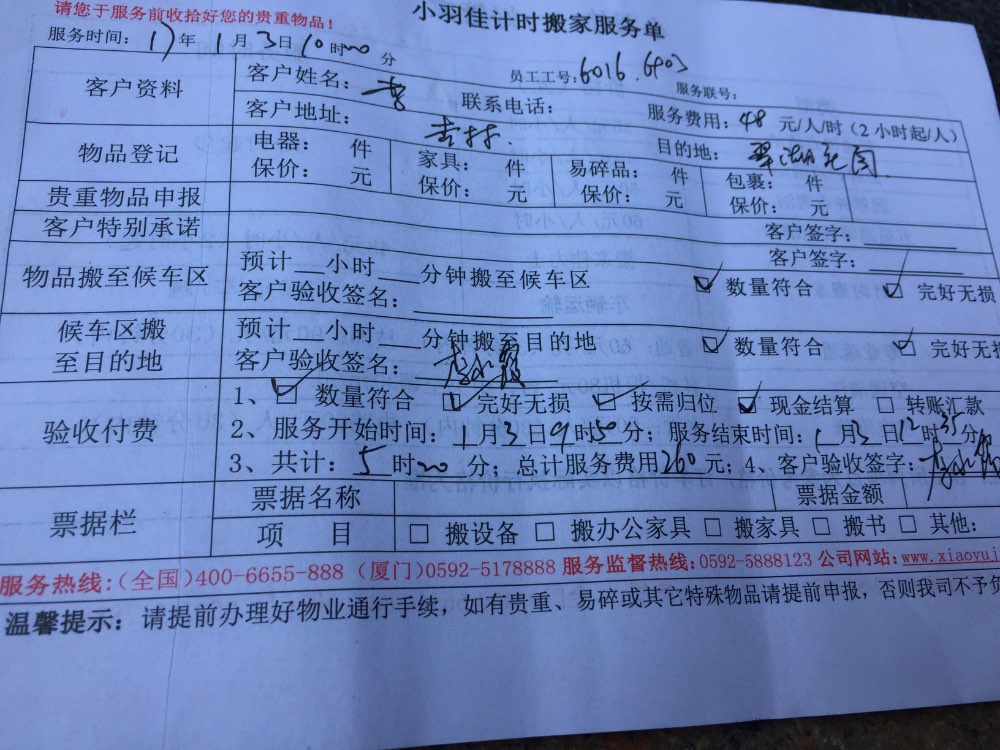 请您于服务前收拾好您的贵重物品！
小羽佳计时搬家服务单
服务时间：17年1月3日10时00分
员工工号：6016.6903
服务联号：
客户资料 客户姓名：李 联系电话： 服务费用：48元/人/时（2小时起/人）
客户地址：吉林. 目的地：翠湖花园
物品登记 电器： 件 家具： 件 易碎品： 件 包裹： 件
保价： 元 保价： 元 保价： 元 保价： 元
贵重物品申报 客户签字：
客户特别承诺 客户签字：
物品搬至候车区 预计__小时____分钟搬至候车区 ☑ 数量符合 ☑ 完好无损
客户验收签名：
候车区搬至目的地 预计__小时____分钟搬至目的地 ☑ 数量符合 ☑ 完好无损
客户验收签名：
验收付费 1、☑ 数量符合 ☑ 完好无损 ☑ 按需归位 ☑ 现金结算 □ 转账汇款
2、服务开始时间：1月3日9时50分；服务结束时间：1月3日12时35分
3、共计：5时00分；总计服务费用260元；4、客户验收签字：
票据栏 票据名称 票据金额
项 目 □ 搬设备 □ 搬办公家具 □ 搬家具 □ 搬书 □ 其他：
服务热线：（全国）400-6655-888（厦门）0592-5178888 服务监督热线：0592-5888123 公司网站：www.xiaoyuji
温馨提示：请提前办理好物业通行手续，如有贵重、易碎或其它特殊物品请提前申报，否则我司不予负